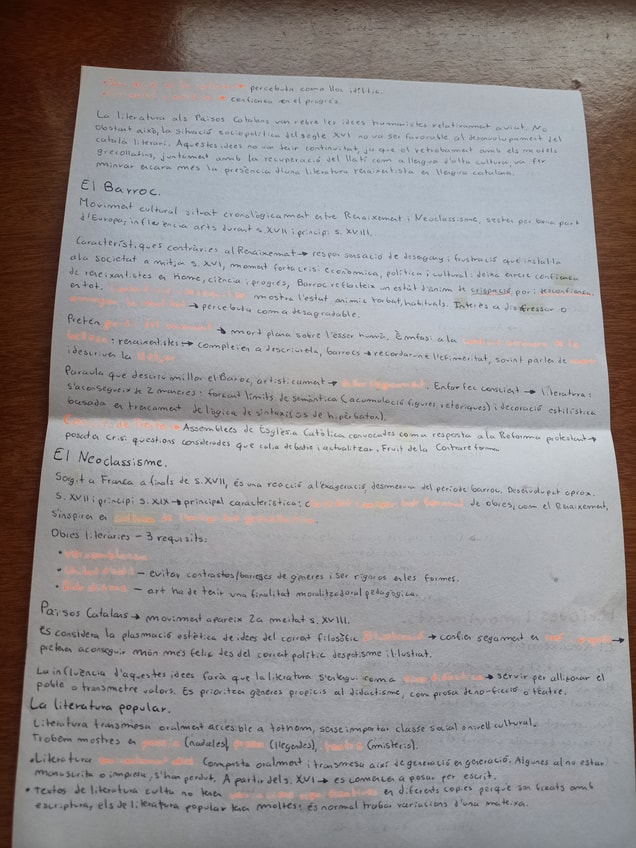 percebuda com a lloc idíl·lic.
confiança en el progrés.
La literatura als Països Catalans van rebre les idees humanistes relativament aviat. No
obstant això, la situació sociopolítica del segle XVI no va ser favorable al desenvolupament del
català literari. Aquestes idees no van tenir continuïtat, ja que el retrobament amb els models
grecollatins, juntament amb la recuperació del llatí com a llengua d'alta cultura, va fer
minvar encara més la presència d'una literatura renaixentista en llengua catalana.
El Barroc.
Moviment cultural situat cronològicament entre Renaixement i Neoclassisme, s'estén per bona part
d'Europa, influencia arts durant s. XVII i principi s. XVIII.
Característiques contràries al Renaixement → respon sensació de desengany i frustració que instal·la
a la societat a mitjan s. XVI, moment forta crisi econòmica, política i cultural: deixa enrere confiança
de renaixentistes en home, ciència i progrés, Barroc reflecteix un estat d'ànim de crispació, por i desconfiança
en tot. mostra l'estat anímic torbat, habituals. Interès a disfressar o
→ percebuta com a desagradable.
Pretén → mord plana sobre l'ésser humà. Èmfasi a la
bellesa: renaixentistes → complaïen a descriure-la, barrocs → recordar-ne l'efimeritat, sovint parlen de
i descriuen la
Paraula que descriu millor el Barroc, artísticament → Enfarfec conscient → literatura:
s'aconsegueix de 2 maneres: forçant límits de semàntica (acumulació figures retòriques) i decoració estilística
basada en trencament de lògica de sintaxi (ús de hipèrbaton).
→ Assemblees de Església Catòlica convocades com a resposta a la Reforma protestant →
posada crisi qüestions considerades que calia debatre i actualitzar. Fruit de la Contrareforma
El Neoclassisme.
Sorgit a França a finals de s. XVII, és una reacció a l'exageració, desmesura del període barroc. Desenvolupat aprox.
s. XVII i principi s. XIX → principal característica: de obres, com el Renaixement,
s'inspira en
Obres literàries – 3 requisits:
• versemblança
• – evitar contrastos/barreges de gèneres i ser rigorós en les formes.
• – art ha de tenir una finalitat moralitzadora i pedagògica.
Països Catalans → moviment apareix 2a meitat s. XVIII.
Es considera la plasmació estètica de idees del corrent filosòfic → confien segament en
pretenen aconseguir món més feliç des del corrent polític despotisme il·lustrat.
La influència d'aquestes idees farà que la literatura s'entengui com a → servir per alliçonar el
poble o transmetre valors. Es prioritzen gèneres propicis al didactisme, com prosa de no-ficció o teatre.
La literatura popular.
Literatura transmesa oralment accessible a tothom, sense importar classe social o nivell cultural.
Trobem mostres en poesia (nadales), prosa (llegendes), teatre (misteris).
• Literatura Composta oralment i transmesa així de generació en generació. Algunes al no estar
manuscrita o impresa, s'han perdut. A partir del s. XVI → es comencen a posar per escrit.
• Textos de literatura culta no tenen en diferents còpies perquè són fixats amb
escriptura, els de literatura popular tenen moltes: és normal trobar variacions d'una mateixa.